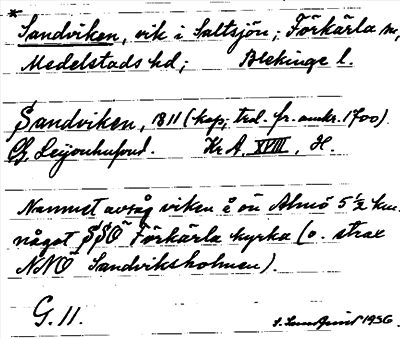 *
Sandviken, vik i Saltsjön; Förkärla sn,
Medelstads hd; Blekinge l.
Sandviken, 1811 (kop; trol. fr. omkr. 1700)
CG Leijonhufvud. KrA, XVIII, H.
Namnet avsåg viken å ön Almö 5 ½ km.
något SSÖ Förkärla kyrka (o. strax
NNÖ Sandviksholmen).
G. 11.
1936